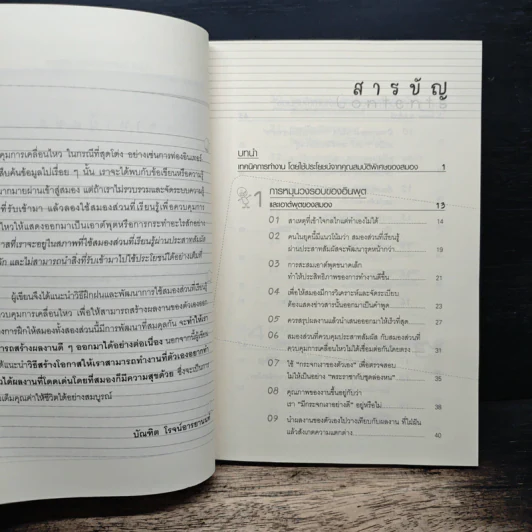 คุมการเคลื่อนไหว ในกรณีที่สุดโต่ง อย่างเช่นการท่องอินเตอร์
สืบค้นข้อมูลไปเรื่อย ๆ นั้น เราจะได้พบกับข้อเขียนหรือความรู้
มากมายผ่านเข้าสู่สมอง แต่ถ้าเราไม่รวบรวมและจัดระบบความรู้
ที่รับเข้ามา แล้วลองใช้สมองส่วนที่เรียนรู้เพื่อควบคุมการ
ไหวให้แสดงออกมาเป็นเอาต์พุตหรือการกระทำอะไรสักอย่าง
าสที่เราจะอยู่ในสภาพที่ใช้สมองส่วนที่เรียนรู้ผ่านประสาทสัมผัส
ลัก และไม่สามารถนำสิ่งที่รับเข้ามาไปใช้ประโยชน์ได้อย่างเต็มที่
ผู้เขียนจึงได้แนะนำวิธีฝึกฝนและพัฒนาการใช้สมองส่วนที่เรียนรู้
ควบคุมการเคลื่อนไหว เพื่อให้สามารถสร้างผลงานของตัวเองออก
การฝึกให้สมองทั้งสองส่วนนี้มีการพัฒนาที่สมดุลกัน จะทำให้เรา
ารถสร้างผลงานดี ๆ ออกมาได้อย่างต่อเนื่อง นอกจากนี้ผู้เขียน
ด้แนะนำวิธีสร้างโอกาสให้เราสามารถทำงานที่ตัวเองอยากทำ
วได้ผลงานที่โดดเด่นโดยที่สมองก็มีความสุขด้วย ซึ่งจะเป็นการ
เติมคุณค่าให้ชีวิตได้อย่างสมบูรณ์
บัณฑิต โรจน์อารยานนท์
สารบัญ
Contents
บทนำ
เทคนิคการทำงาน โดยใช้ประโยชน์จากคุณสมบัติพิเศษของสมอง 1
1 การหมุนวงรอบของอินพุต
และเอาต์พุตของสมอง 13
01 สาเหตุที่เข้าใจกลไกแต่ทำเองไม่ได้ 14
02 คนในยุคนี้มีแนวโน้มว่า สมองส่วนที่เรียนรู้
ผ่านประสาทสัมผัสจะพัฒนารุดหน้ากว่า 19
03 การสะสมเอาต์พุตขนาดเล็ก
ทำให้ประสิทธิภาพของการทำงานดีขึ้น 21
04 เพื่อให้สมองมีการวิเคราะห์และจัดระเบียบ
ต้องแสดงข่าวสารนั้นออกมาเป็นคำพูด 24
05 ควรสรุปผลงานแล้วนำเสนอออกมาให้เร็วที่สุด 27
06 สมองส่วนที่ควบคุมประสาทสัมผัส กับสมองส่วนที่
ควบคุมการเคลื่อนไหวไม่ได้เชื่อมต่อกันโดยตรง 30
07 ใช้ "กระจกเงาของตัวเอง" เพื่อตรวจสอบ
ไม่ให้เป็นอย่าง "พระราชากับชุดล่องหน" 33
08 คุณภาพของงานขึ้นอยู่กับว่า
เรา "มีกระจกเงาอย่างดี" อยู่หรือไม่ 36
09 นำผลงานของตัวเองไปวางเทียบกับผลงาน ที่ไม่มีน
แล้วสังเกตความแตกต่าง 40